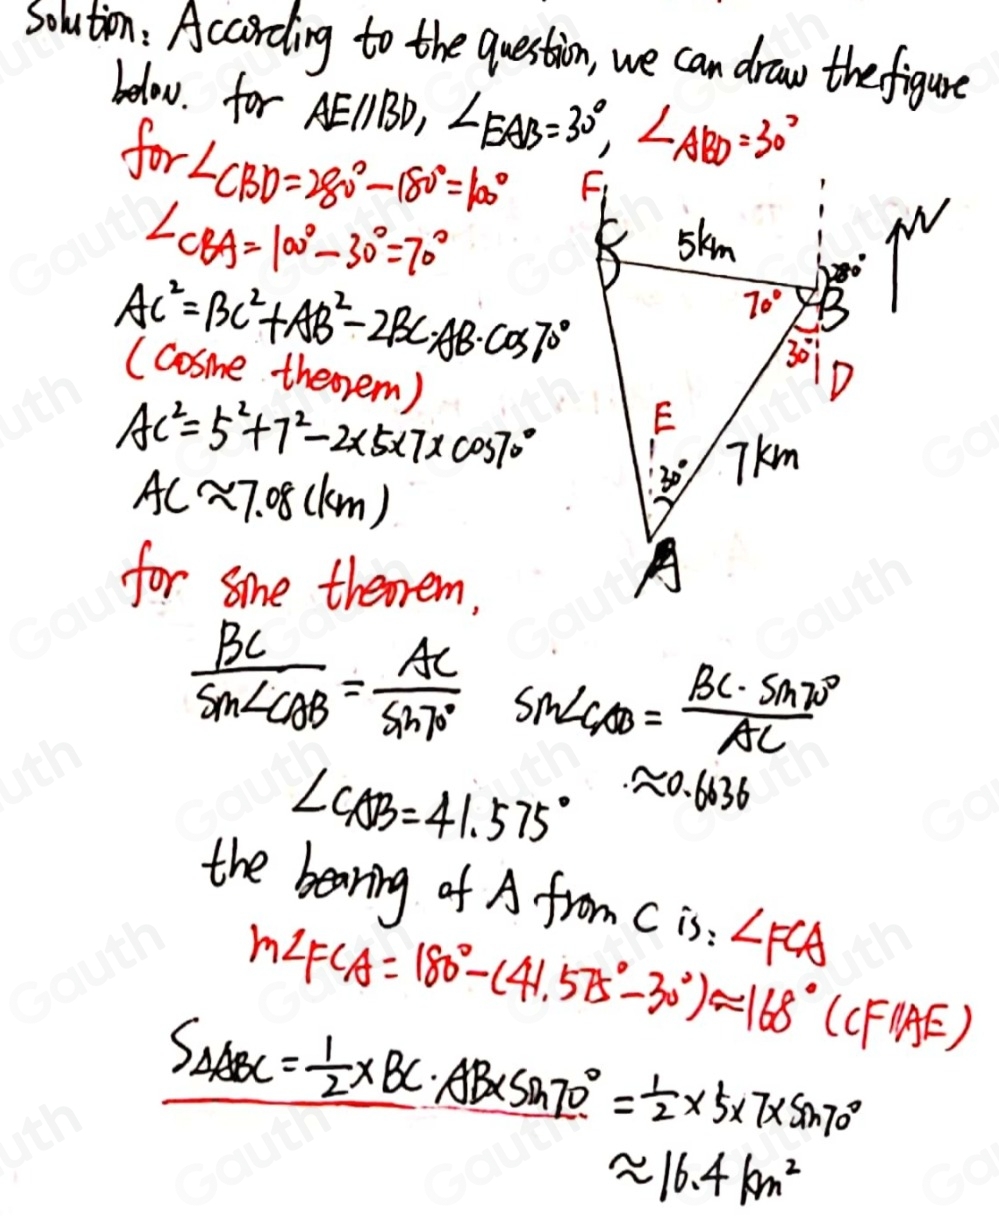 Solution: According to the question, we can draw the figure
below. for AE//BD, ∠EAB=30°, ∠ABD=30°
for ∠CBD=280°-180°=100°
∠CBA=100°-30°=70°
AC²=BC²+AB²-2BC·AB·cos70°
(cosine theorem)
AC²=5²+7²-2×5×7×cos70°
AC≈7.08(km)
F
C
5km
N
280°
70°
B
30°
D
E
30°
7km
A
for sine theorem,
BC/sin∠CAB = AC/sin70° sin∠CAB = BC·sin70°/AC
≈0.6636
∠CAB=41.575°
the bearing of A from C is: ∠FCA
m∠FCA=180°-(41.575°-30°)≈168° (CF//AE)
S△ABC=1/2×BC·AB×sin70° =1/2×5×7×sin70°
≈16.4 km²
Gauth